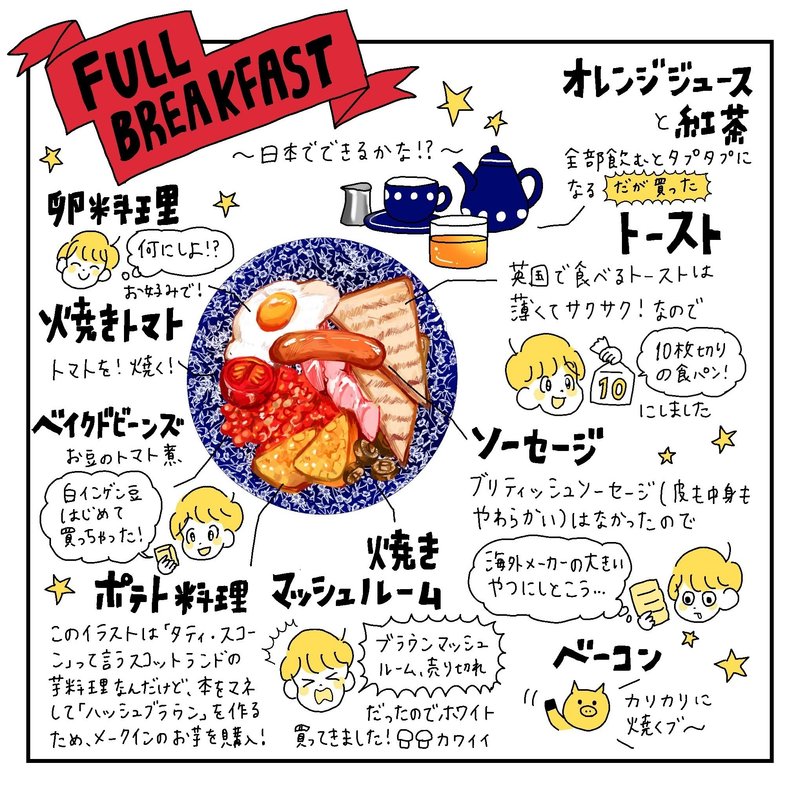 FULL
BREAKFAST
～日本でできるかな!?～
オレンジジュース
と紅茶
全部飲むとタプタプに
なる だが買った
卵料理
何にしよ!?
お好みで!
トースト
英国で食べるトーストは
薄くてサクサク!なので
10枚切り
の食パン!
10
にしました
焼きトマト
トマトを!焼く!
ベイクドビーンズ
お豆のトマト煮
白インゲン豆
はじめて
買っちゃった!
ソーセージ
ブリティッシュソーセージ(皮も中身も
やわらかい)はなかったので
海外メーカーの大きい
やつにしとこう…
ポテト料理
このイラストは「タティ・スコー
ン」って言うスコットランドの
芋料理なんだけど、本をマネ
して「ハッシュブラウン」を作る
ため、メークインのお芋を購入!
焼き
マッシュルーム
ブラウンマッシュ
ルーム、売り切れ
だったのでホワイト
買ってきました!カワイイ
ベーコン
カリカリに
焼くブ〜